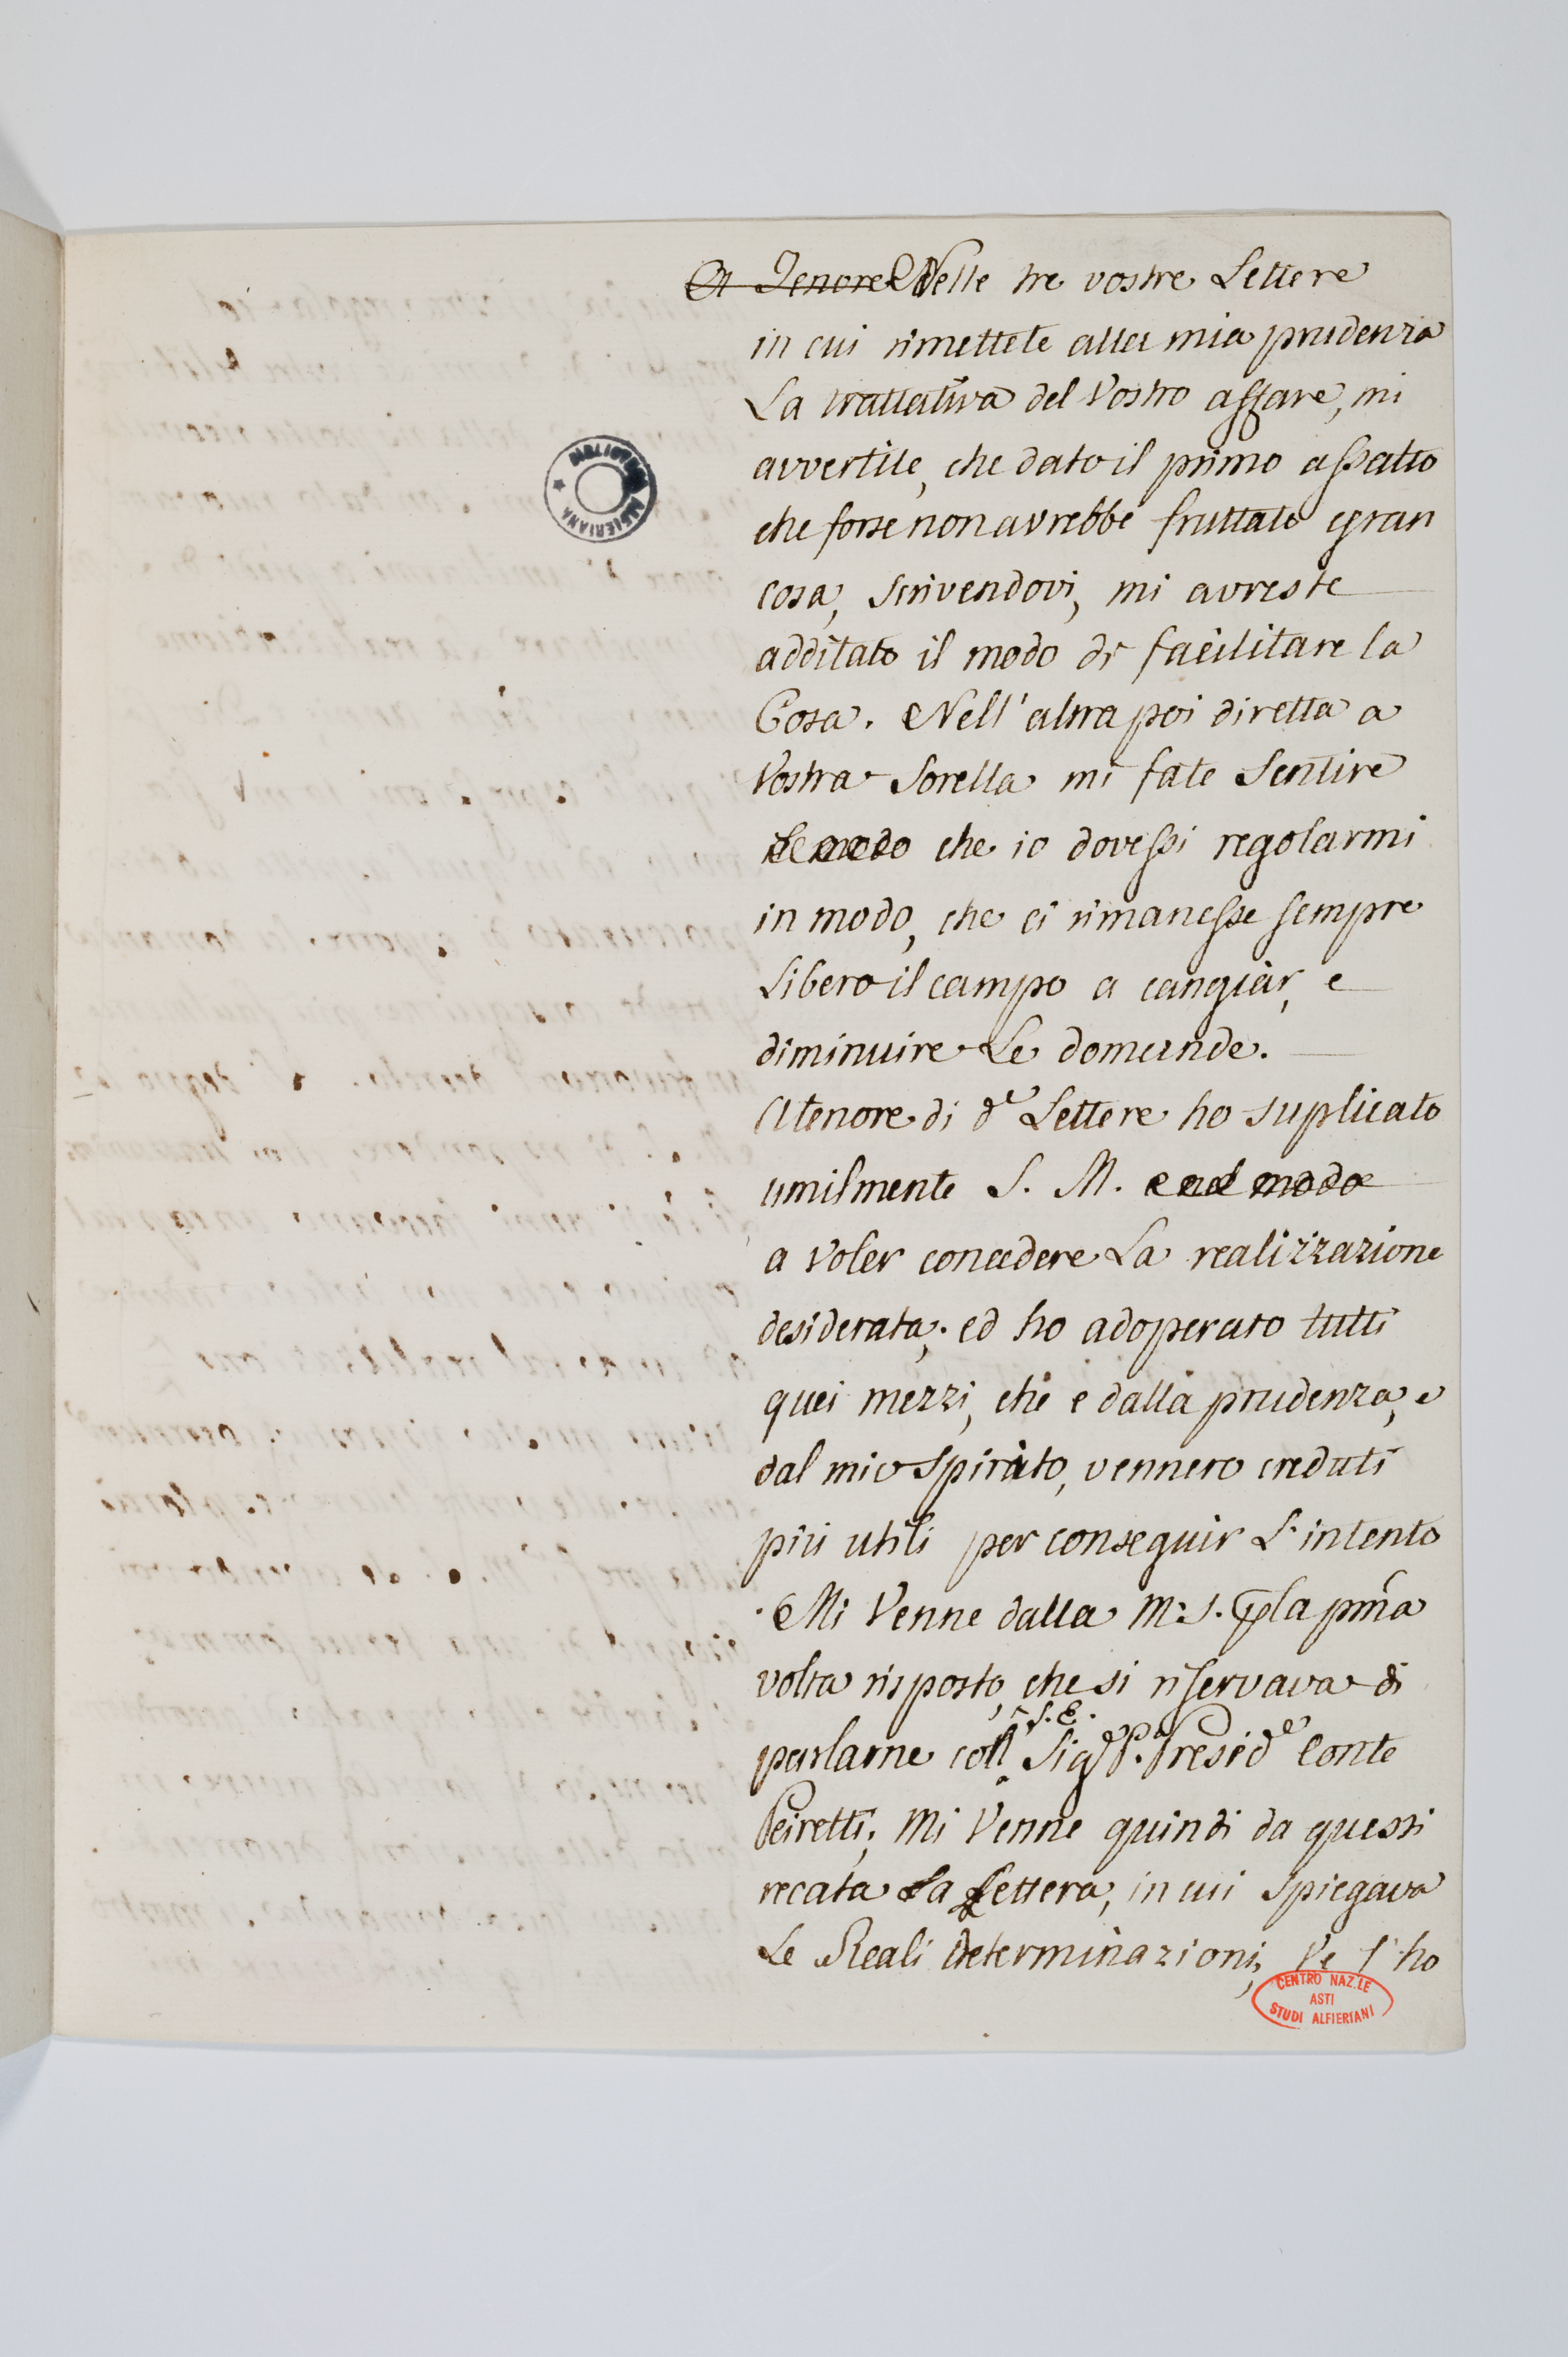 A Tenore Nelle tre vostre Lettere
in cui rimettete alla mia prudenza
La trattativa del Vostro affare, mi
avvertite, che dato il primo assalto
che forse non avrebbe fruttato gran
cosa, Scrivendovi, mi avreste
additato il modo di facilitare la
Cosa. Nell'altra poi diretta a
Vostra Sorella mi fate Sentire
che io dovessi regolarmi
in modo, che ci rimanesse sempre
Libero il campo a cangiar, e
diminuire Le domande.
A tenore di de Lettere ho suplicato
umilmente S. M.
a Voler concedere La realizzazione
desiderata; ed ho adoperato tutti
quei mezzi, che e dalla prudenza, e
dal mio Spirito, vennero creduti
più utili per conseguir L'intento
. Mi Venne dalla M: S. p la pma
volta risposto, che si riservava di
S. E.
parlarne coll Sigr P. Preside Conte
Peiretti; Mi Venne quindi da questi
recata La Lettera, in cui spiegava
Le Reali Determinazioni, Ve l'ho
BIBLIOTECA ALFIERIANA
CENTRO NAZ.LE
ASTI
STUDI ALFIERIANI